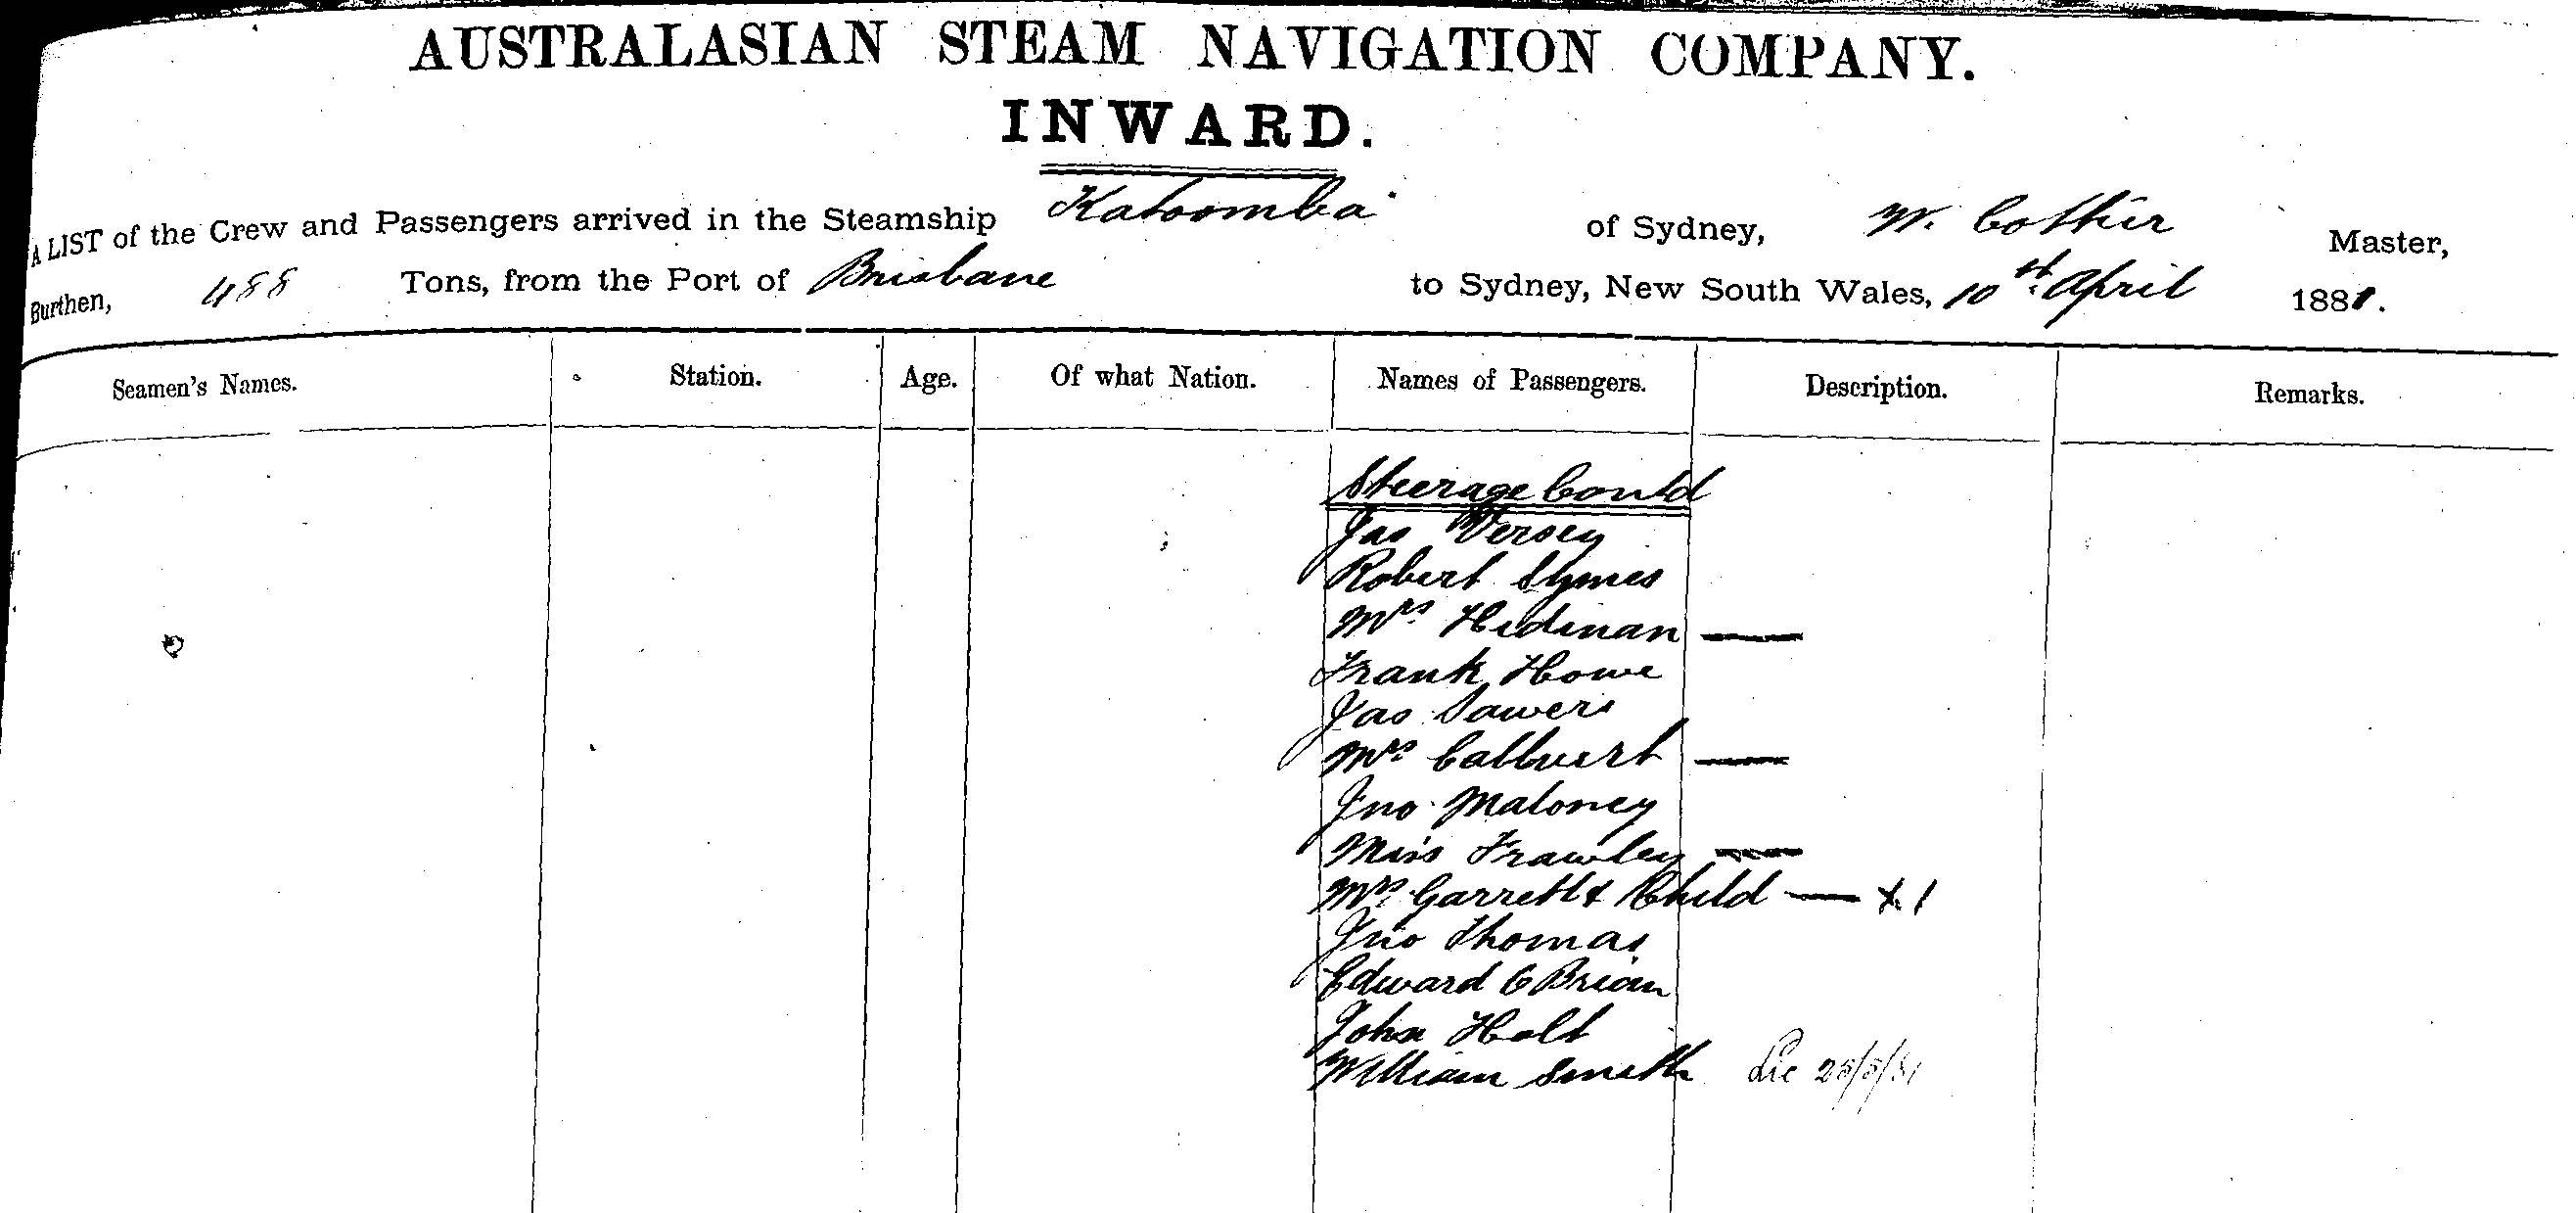 AUSTRALASIAN STEAM NAVIGATION COMPANY.
INWARD.
A LIST of the Crew and Passengers arrived in the Steamship Katoomba of Sydney, W. Cottier Master,
Burthen, 488 Tons, from the Port of Brisbane to Sydney, New South Wales, 10th April 1881.
Seamen's Names. Station. Age. Of what Nation. Names of Passengers. Description. Remarks.
Steerage Contd
Jas Versey
Robert Symes
Mrs Hidinan —
Frank Howe
Jas Sawers
Mrs Callvert —
Jno Maloney
Miss Frawley —
Mrs Garrett & Child — x 1
Jno Thomas
Edward O Brian
John Holt
William Smith